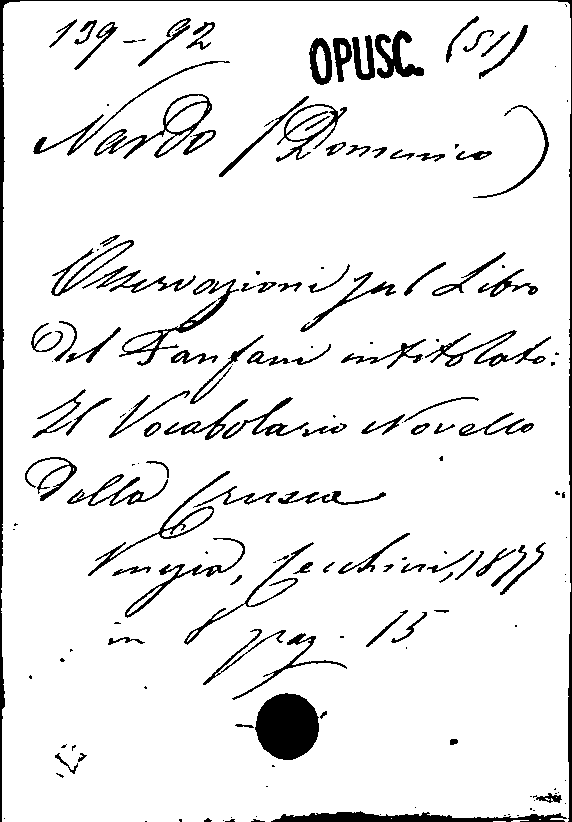 139-92 OPUSC. (51)
Nardo (Domenico)
Osservazioni sul Libro
del Fanfani intitolato:
Il Vocabolario Novello
della Crusca
Venezia, Cecchini, 1877
in 8 pag. 15